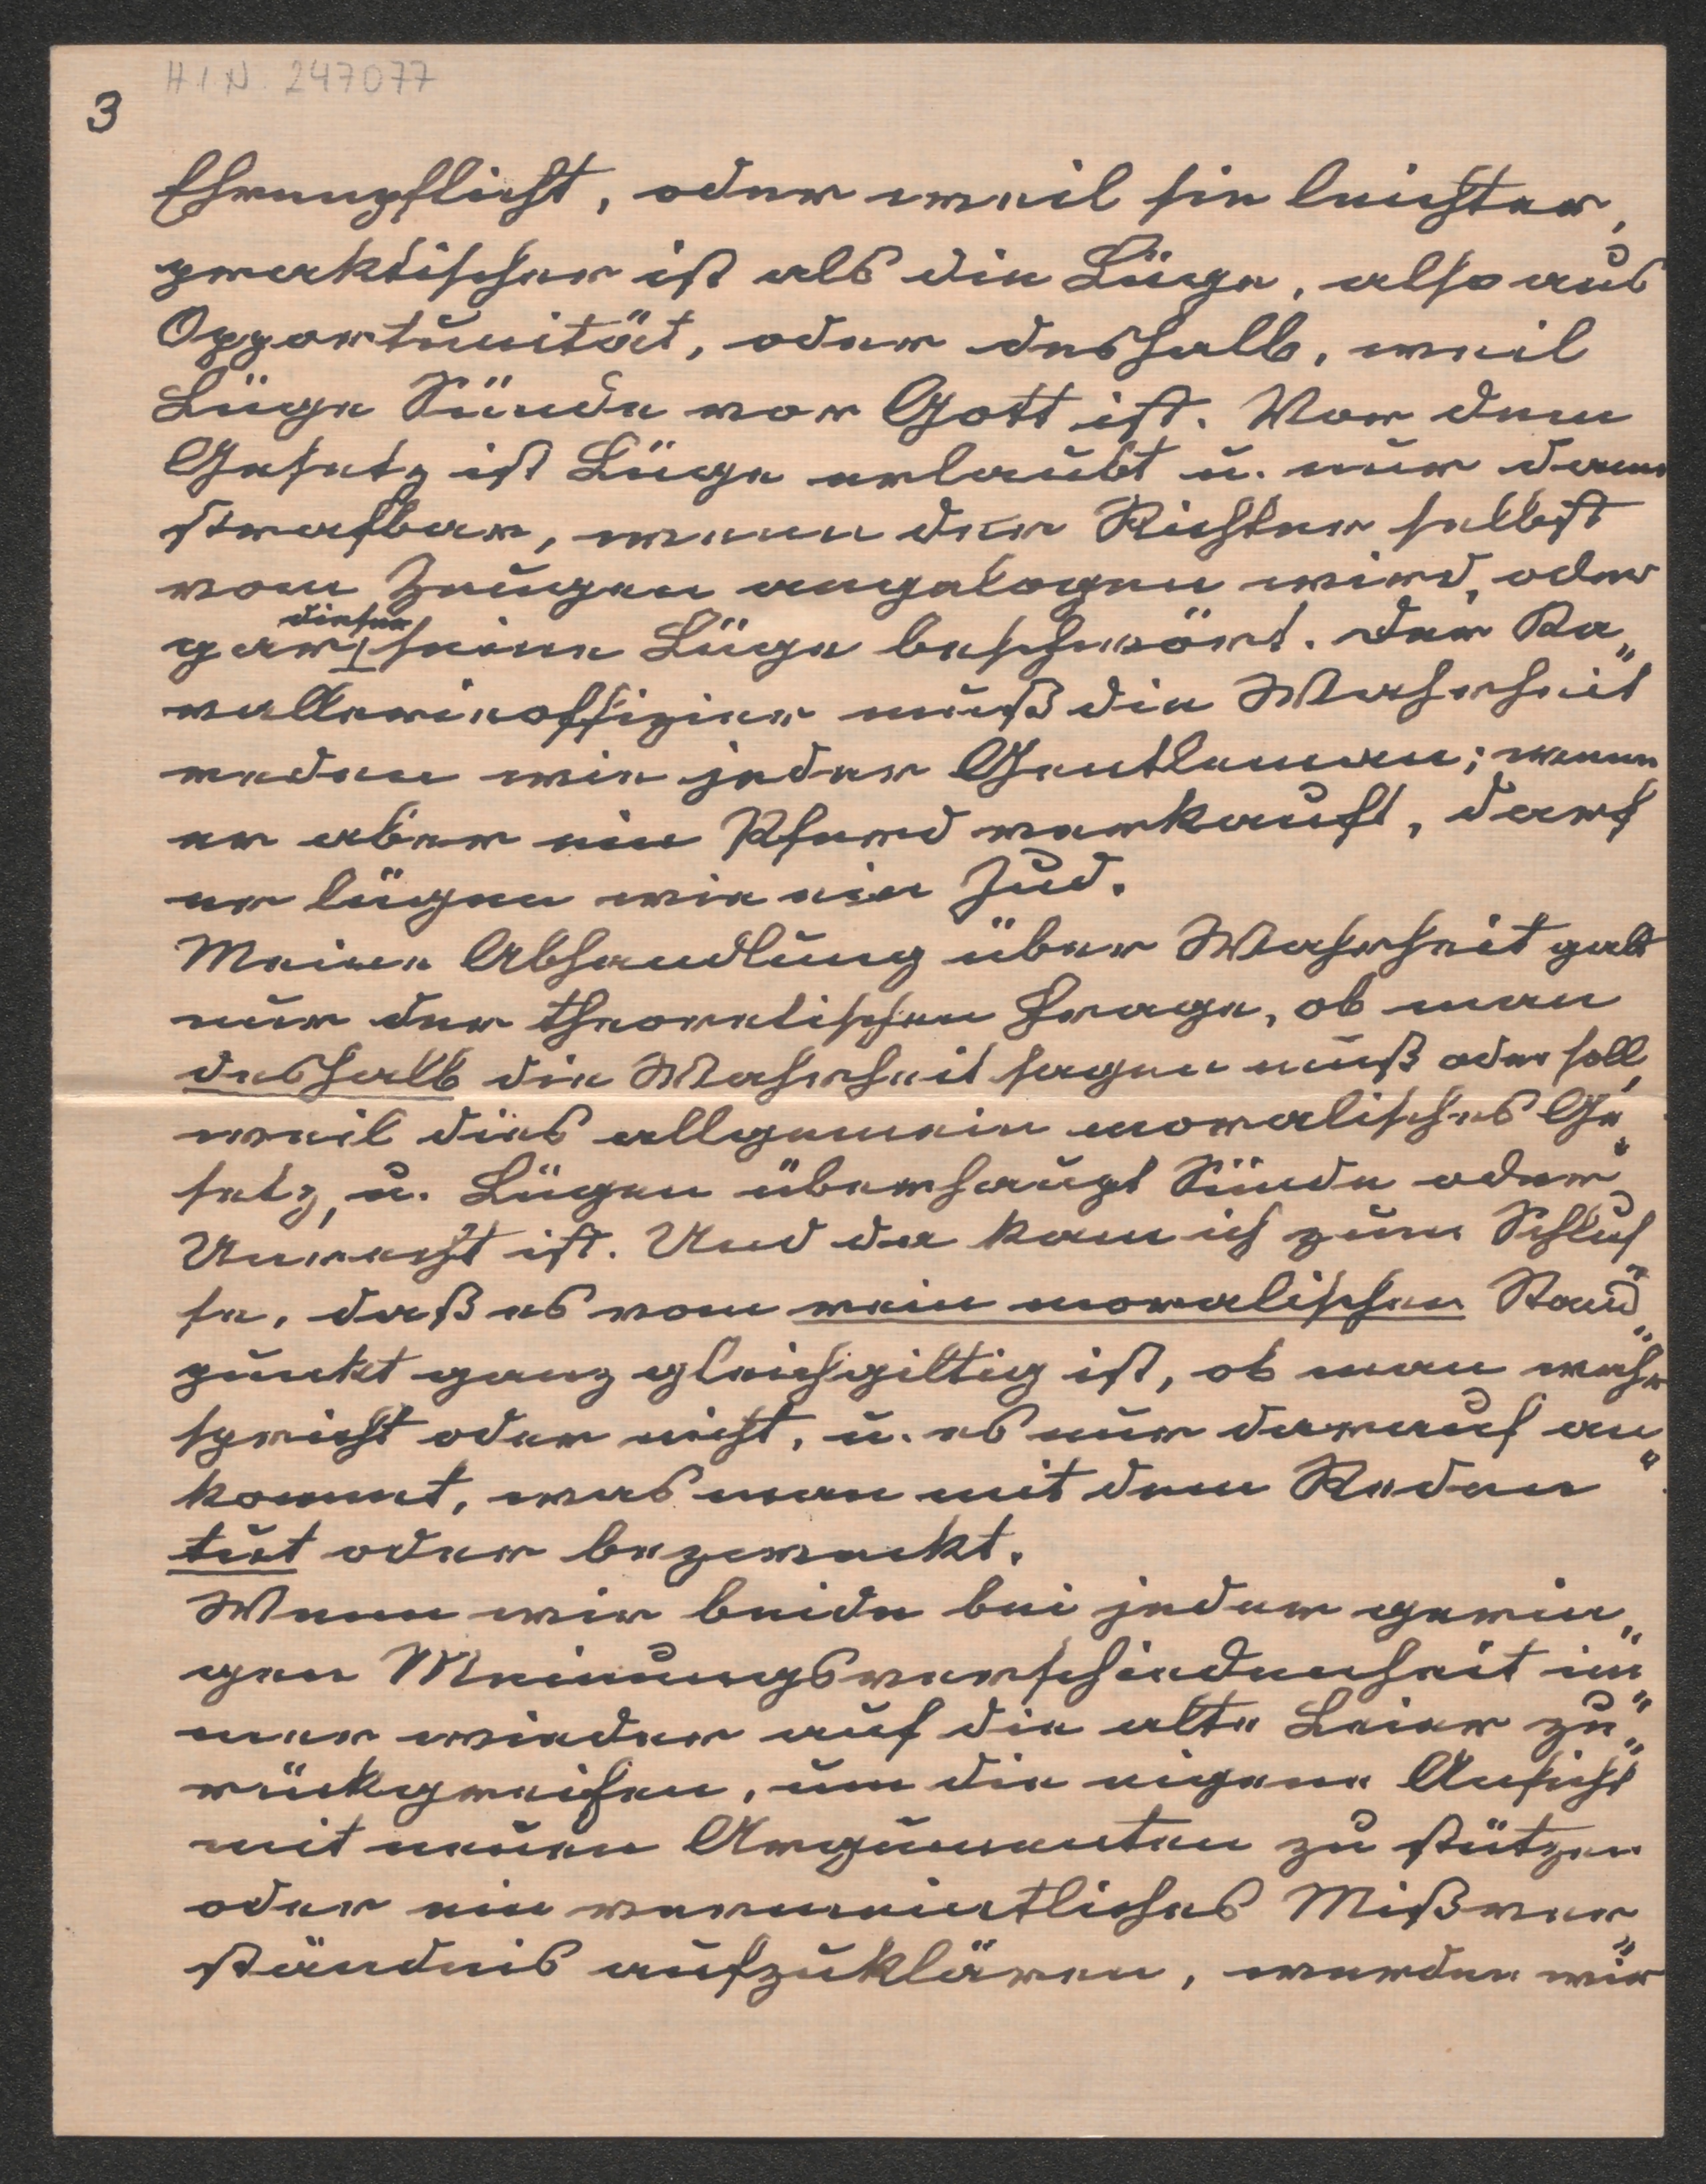 H.I.N. 247077
3
Ehrenpflicht, oder weil sie leichter,
praktischer ist als die Lüge, also aus
Opportunität, oder deshalb, weil
Lüge Sünde vor Gott ist. Vor dem
Gesetz ist Lüge erlaubt u. nur dann
strafbar, wenn der Richter selbst
vom Zeugen angelogen wird, oder
gar dieser seine Lüge beschwört. Der Ka„
vallerieoffizier muß die Wahrheit
reden wie jeder Gentleman; wenn
er aber ein Pferd verkauft, darf
er lügen wie ein Jud.
Meine Abhandlung über Wahrheit galt
nur der theoretischen Frage, ob man
deshalb die Wahrheit sagen muß oder soll,
weil dies allgemein moralisches Ge„
setz, u. Lügen überhaupt Sünde oder
Unrecht ist. Und da kam ich zum Schluß„
se, daß es vom rein moralischen Stand„
punkt ganz gleichgiltig ist, ob man wahr
spricht oder nicht, u. es nur darauf an„
kommt, was man mit dem Reden
tut oder bezweckt.
Wenn wir beide bei jeder gerin„
gen Meinungsverschiedenheit im„
mer wieder auf die alte Leier zu„
rückgreifen, um die eigene Ansicht
mit neuen Argumenten zu stützen
oder ein vermeintliches Mißver„
ständnis aufzuklären, werden wir